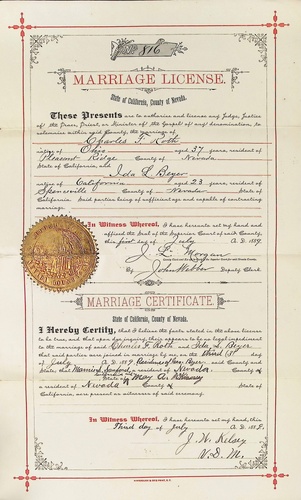 No. 816
MARRIAGE LICENSE.
State of California, County of Nevada.
These Presents are to authorize and license any Judge, Justice
of the Peace, Priest, or Minister of the Gospel of any denomination, to
solemnize within said County, the marriage of
Charles F. Roth
native of Ohio aged 37 years, resident of
Pleasant Ridge County of Nevada
State of California, and
Ida L Beyer
native of California aged 23 years, resident of
County of Nevada State of
California. Said parties being of sufficient age and capable of contracting
marriage.
In Witness Whereof, I have hereunto set my hand and
affixed the Seal of the Superior Court of said County,
this first day of July A. D. 1889.
J. L. Morgan
By John Webber Deputy Clerk
MARRIAGE CERTIFICATE.
State of California, County of Nevada.
I Hereby Certify, that I believe the facts stated in the above license
to be true, and that upon due inquiry, there appears to be no legal impediment
to the marriage of said Charles F. Roth and Ida L. Beyer
that said parties were joined in marriage by me, on the third day of
July A. D. 1889, Residence of Beyer, said County and
State; that Sanford a resident of Nevada County of
State of and Mary A.
a resident of Nevada County of State of
California, were present as witnesses of said ceremony.
In Witness Whereof, I have hereunto set my hand, this
Third day of July A. D. 1889.
J. W. Kelsey
V. D. M.